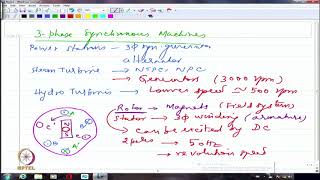 3-phase Synchronous Machines
Power Stations → 3φ syn generator
alternator
Steam Turbine → NTPC, NPC
→ Generators (3000 rpm)
Hydro Turbines → Lower speed ≈ 500 rpm
Rotor → Magnets (Field system)
Stator → 3φ winding (armature)
→ can be excited by DC
2 poles → 50Hz
→ revolution speed
A
C'
B
N
S
B'
C
A'
NPTEL